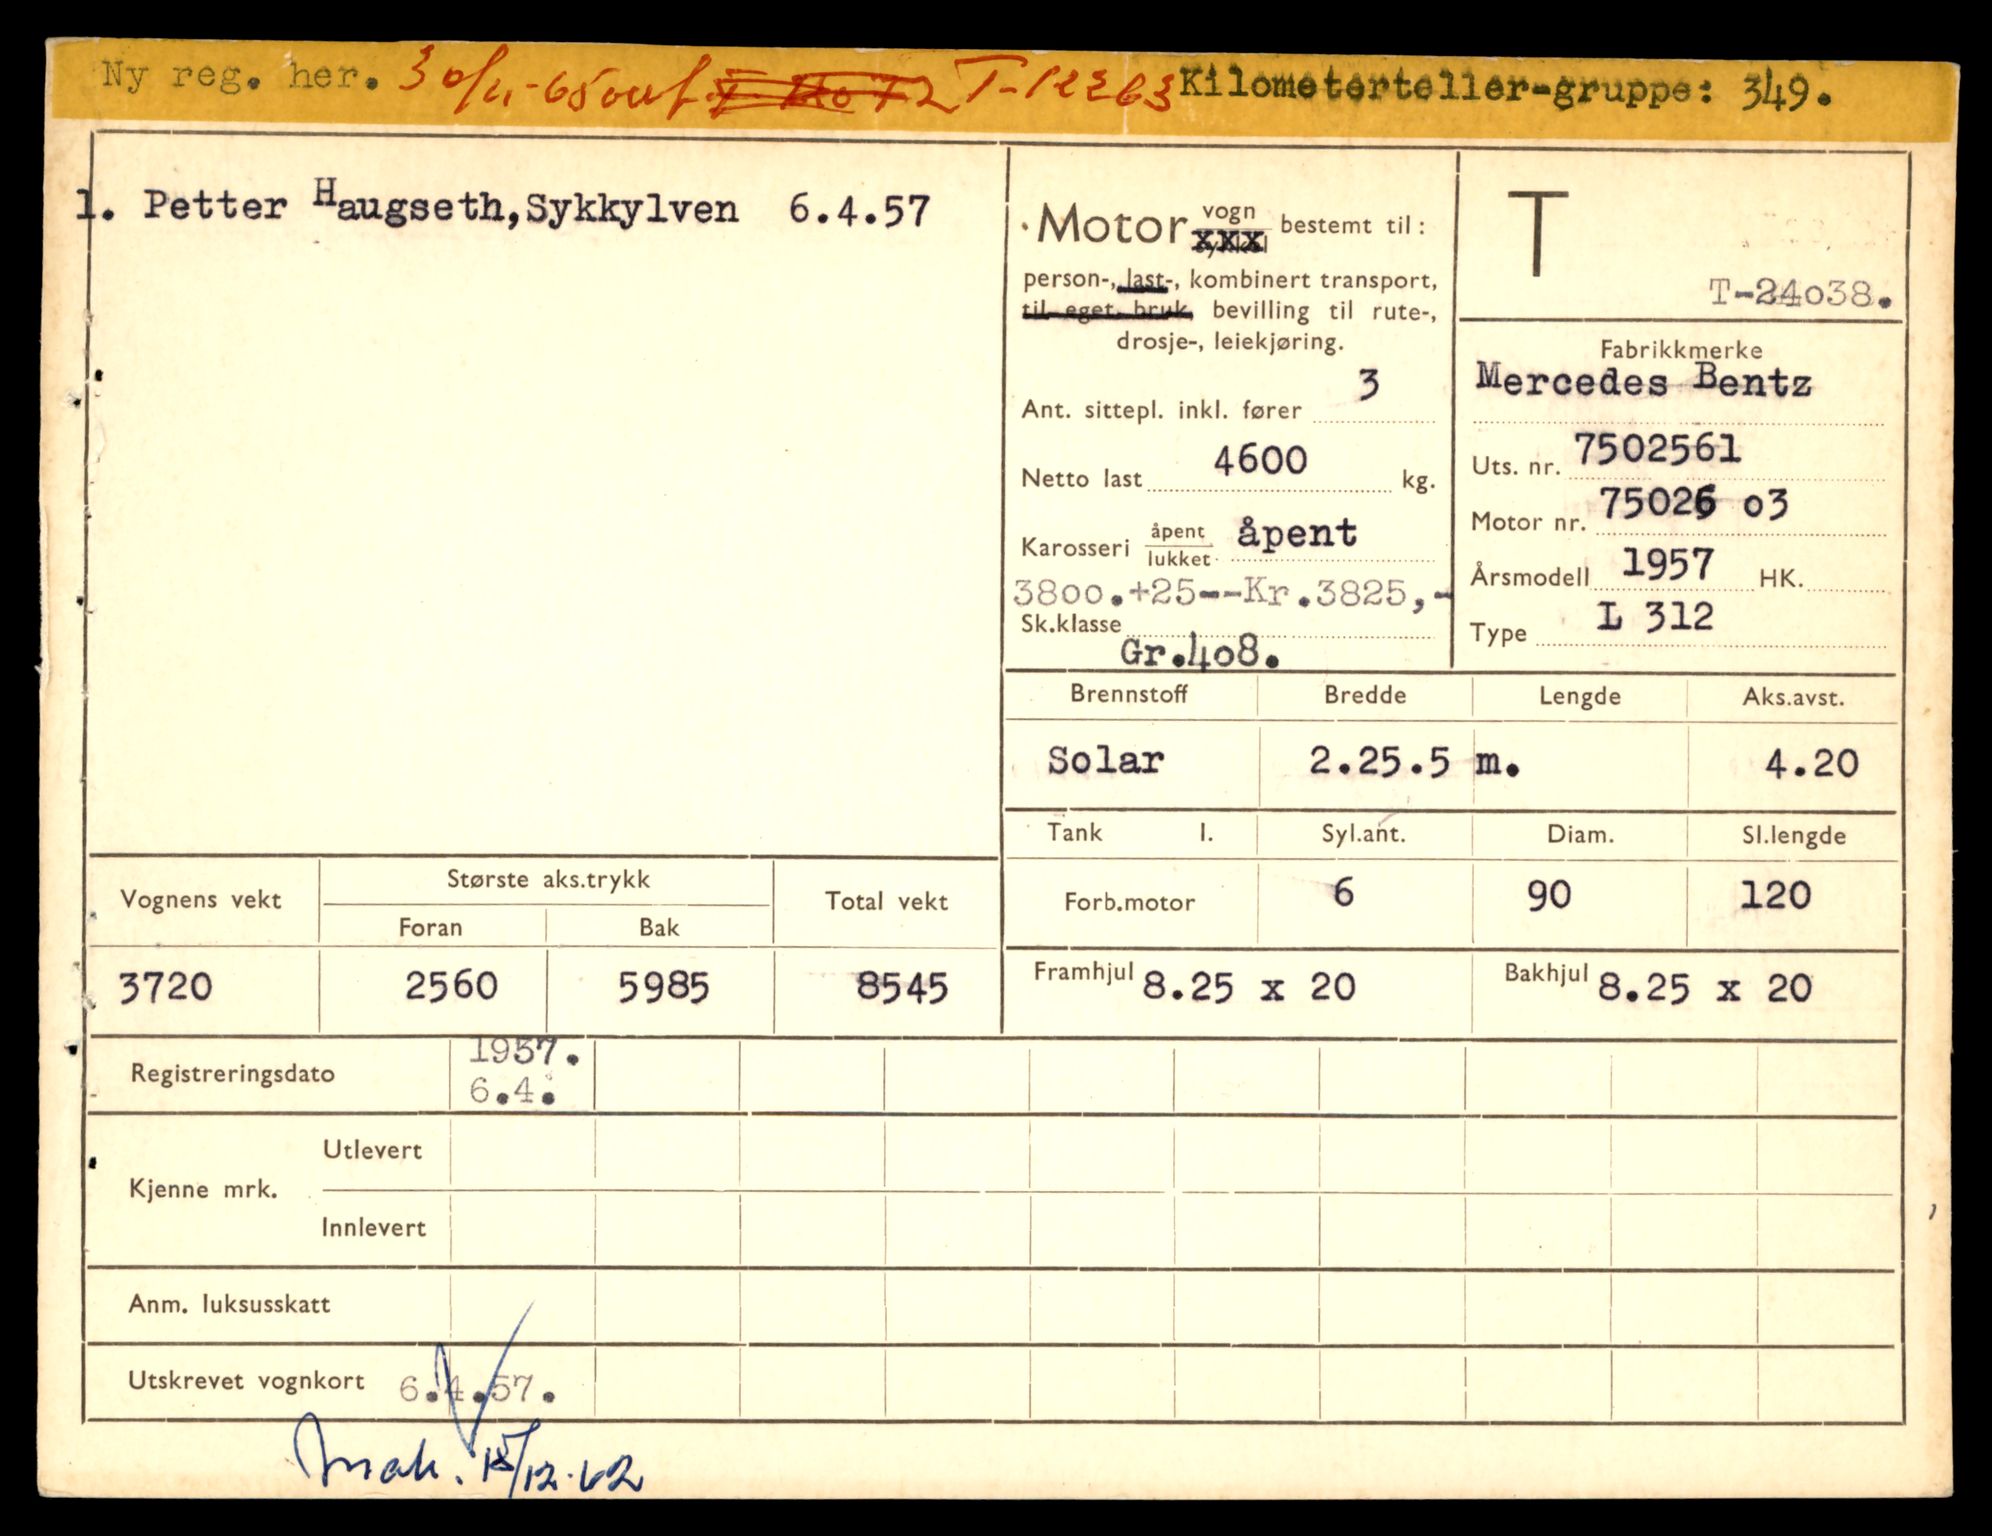 Ny reg. her. 30/11-65 T-12263 Kilometerteller-gruppe: 349.
1. Petter Haugseth, Sykkylven 6.4.57
Motor vogn xxx bestemt til:
person-, last-, kombinert transport,
til eget bruk, bevilling til rute-,
drosje-, leiekjøring.
Ant. sittepl. inkl. fører 3
Netto last 4600 kg.
Karosseri åpent lukket åpent
3800.+25--Kr.3825,-
Sk.klasse
Gr.408.
T
T-24038.
Fabrikkmerke
Mercedes Bentz
Uts. nr. 7502561
Motor nr. 75026 03
Årsmodell 1957 HK.
Type L 312
Brennstoff Bredde Lengde Aks.avst.
Solar 2.25.5 m. 4.20
Tank l. Syl.ant. Diam. Sl.lengde
Forb.motor 6 90 120
Framhjul 8.25 x 20 Bakhjul 8.25 x 20
Vognens vekt Største aks.trykk Total vekt
Foran Bak
3720 2560 5985 8545
Registreringsdato 1957.
6.4.
Kjenne mrk. Utlevert
Innlevert
Anm. luksusskatt
Utskrevet vognkort 6.4.57.
15/12-62